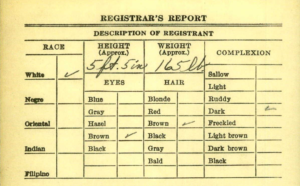 REGISTRAR'S REPORT
DESCRIPTION OF REGISTRANT
RACE HEIGHT (Approx.) WEIGHT (Approx.) COMPLEXION
5 ft. 5 ins 165 lb
White ✓ Sallow
EYES HAIR Light
Negro Blue Blonde Ruddy
Gray Red Dark ✓
Oriental Hazel Brown ✓ Freckled
Brown ✓ Black Light brown
Indian Black Gray Dark brown
Bald Black
Filipino